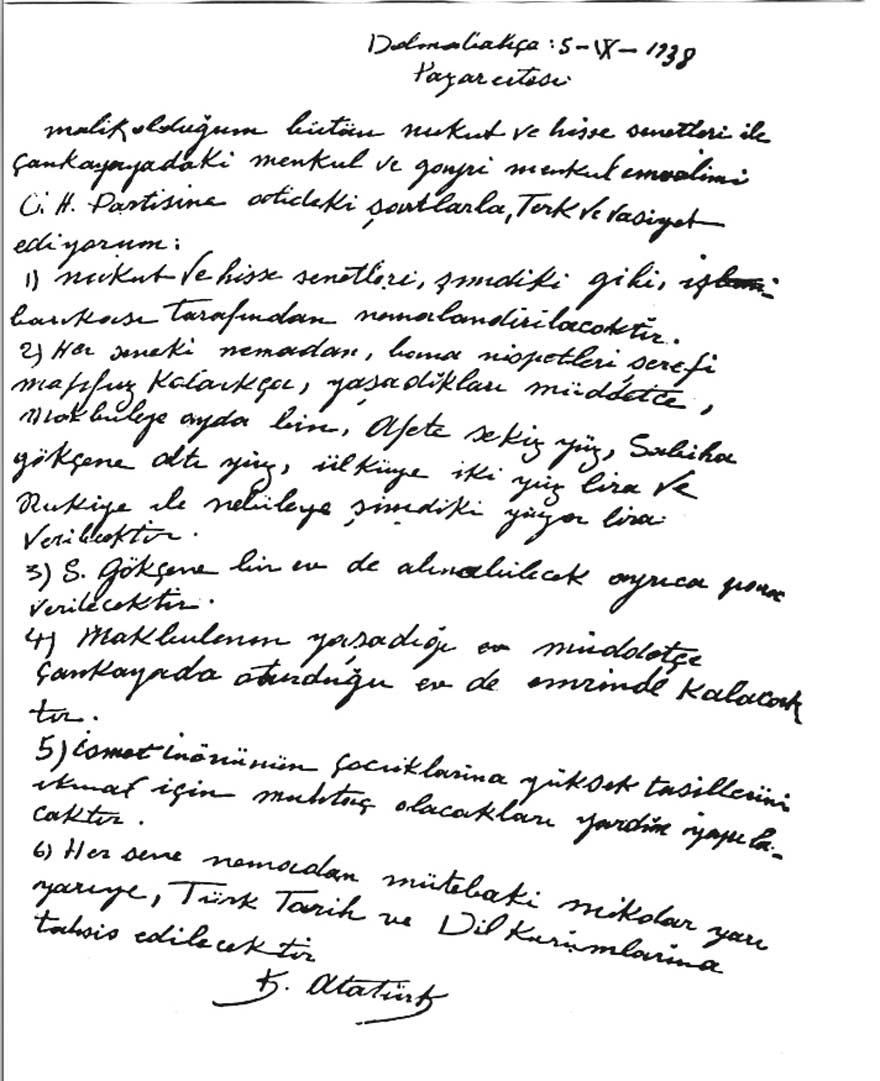 Dolmabahçe : 5-IX-1938
Pazarertesi
malik olduğum bütün nukut ve hisse senetleri ile
Çankayayadaki menkul ve gayri menkul emvalimi
C. H. Partisine atideki şartlarla, Terk ve Vasiyet
ediyorum :
1) nukut ve hisse senetleri, şimdiki gibi, iş
bankası tarafından nemalandırılacaktır.
2) Her seneki nemadan, bana nispetleri şerefi
mahfuz kaldıkça, yaşadıkları müddetçe,
Makbuleye ayda bin, Afete sekiz yüz, Sabiha
gökçene altı yüz, ülküye iki yüz lira ve
Rukiye ile nebileye şimdiki yüzer lira
verilecektir.
3) S. Gökçene bir ev de alınabilecek ayrıca para
verilecektir.
4) Makbulenin yaşadığı müddetçe
Çankayada oturduğu ev de emrinde kalacak
tır.
5) ismet inönünün çocuklarına yüksek tasillerini
ikmal için muhtaç olacakları yardım yapıla-
caktır.
6) Her sene nemadan mütebaki miktar yarı
yarıya, Türk Tarih ve Dil Kurumlarına
tahsis edilecektir
K. Atatürk